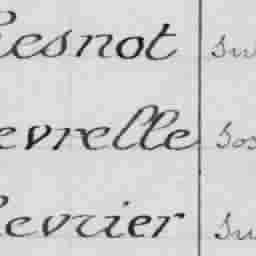 esnot Su
evrelle Jos
evrier Su